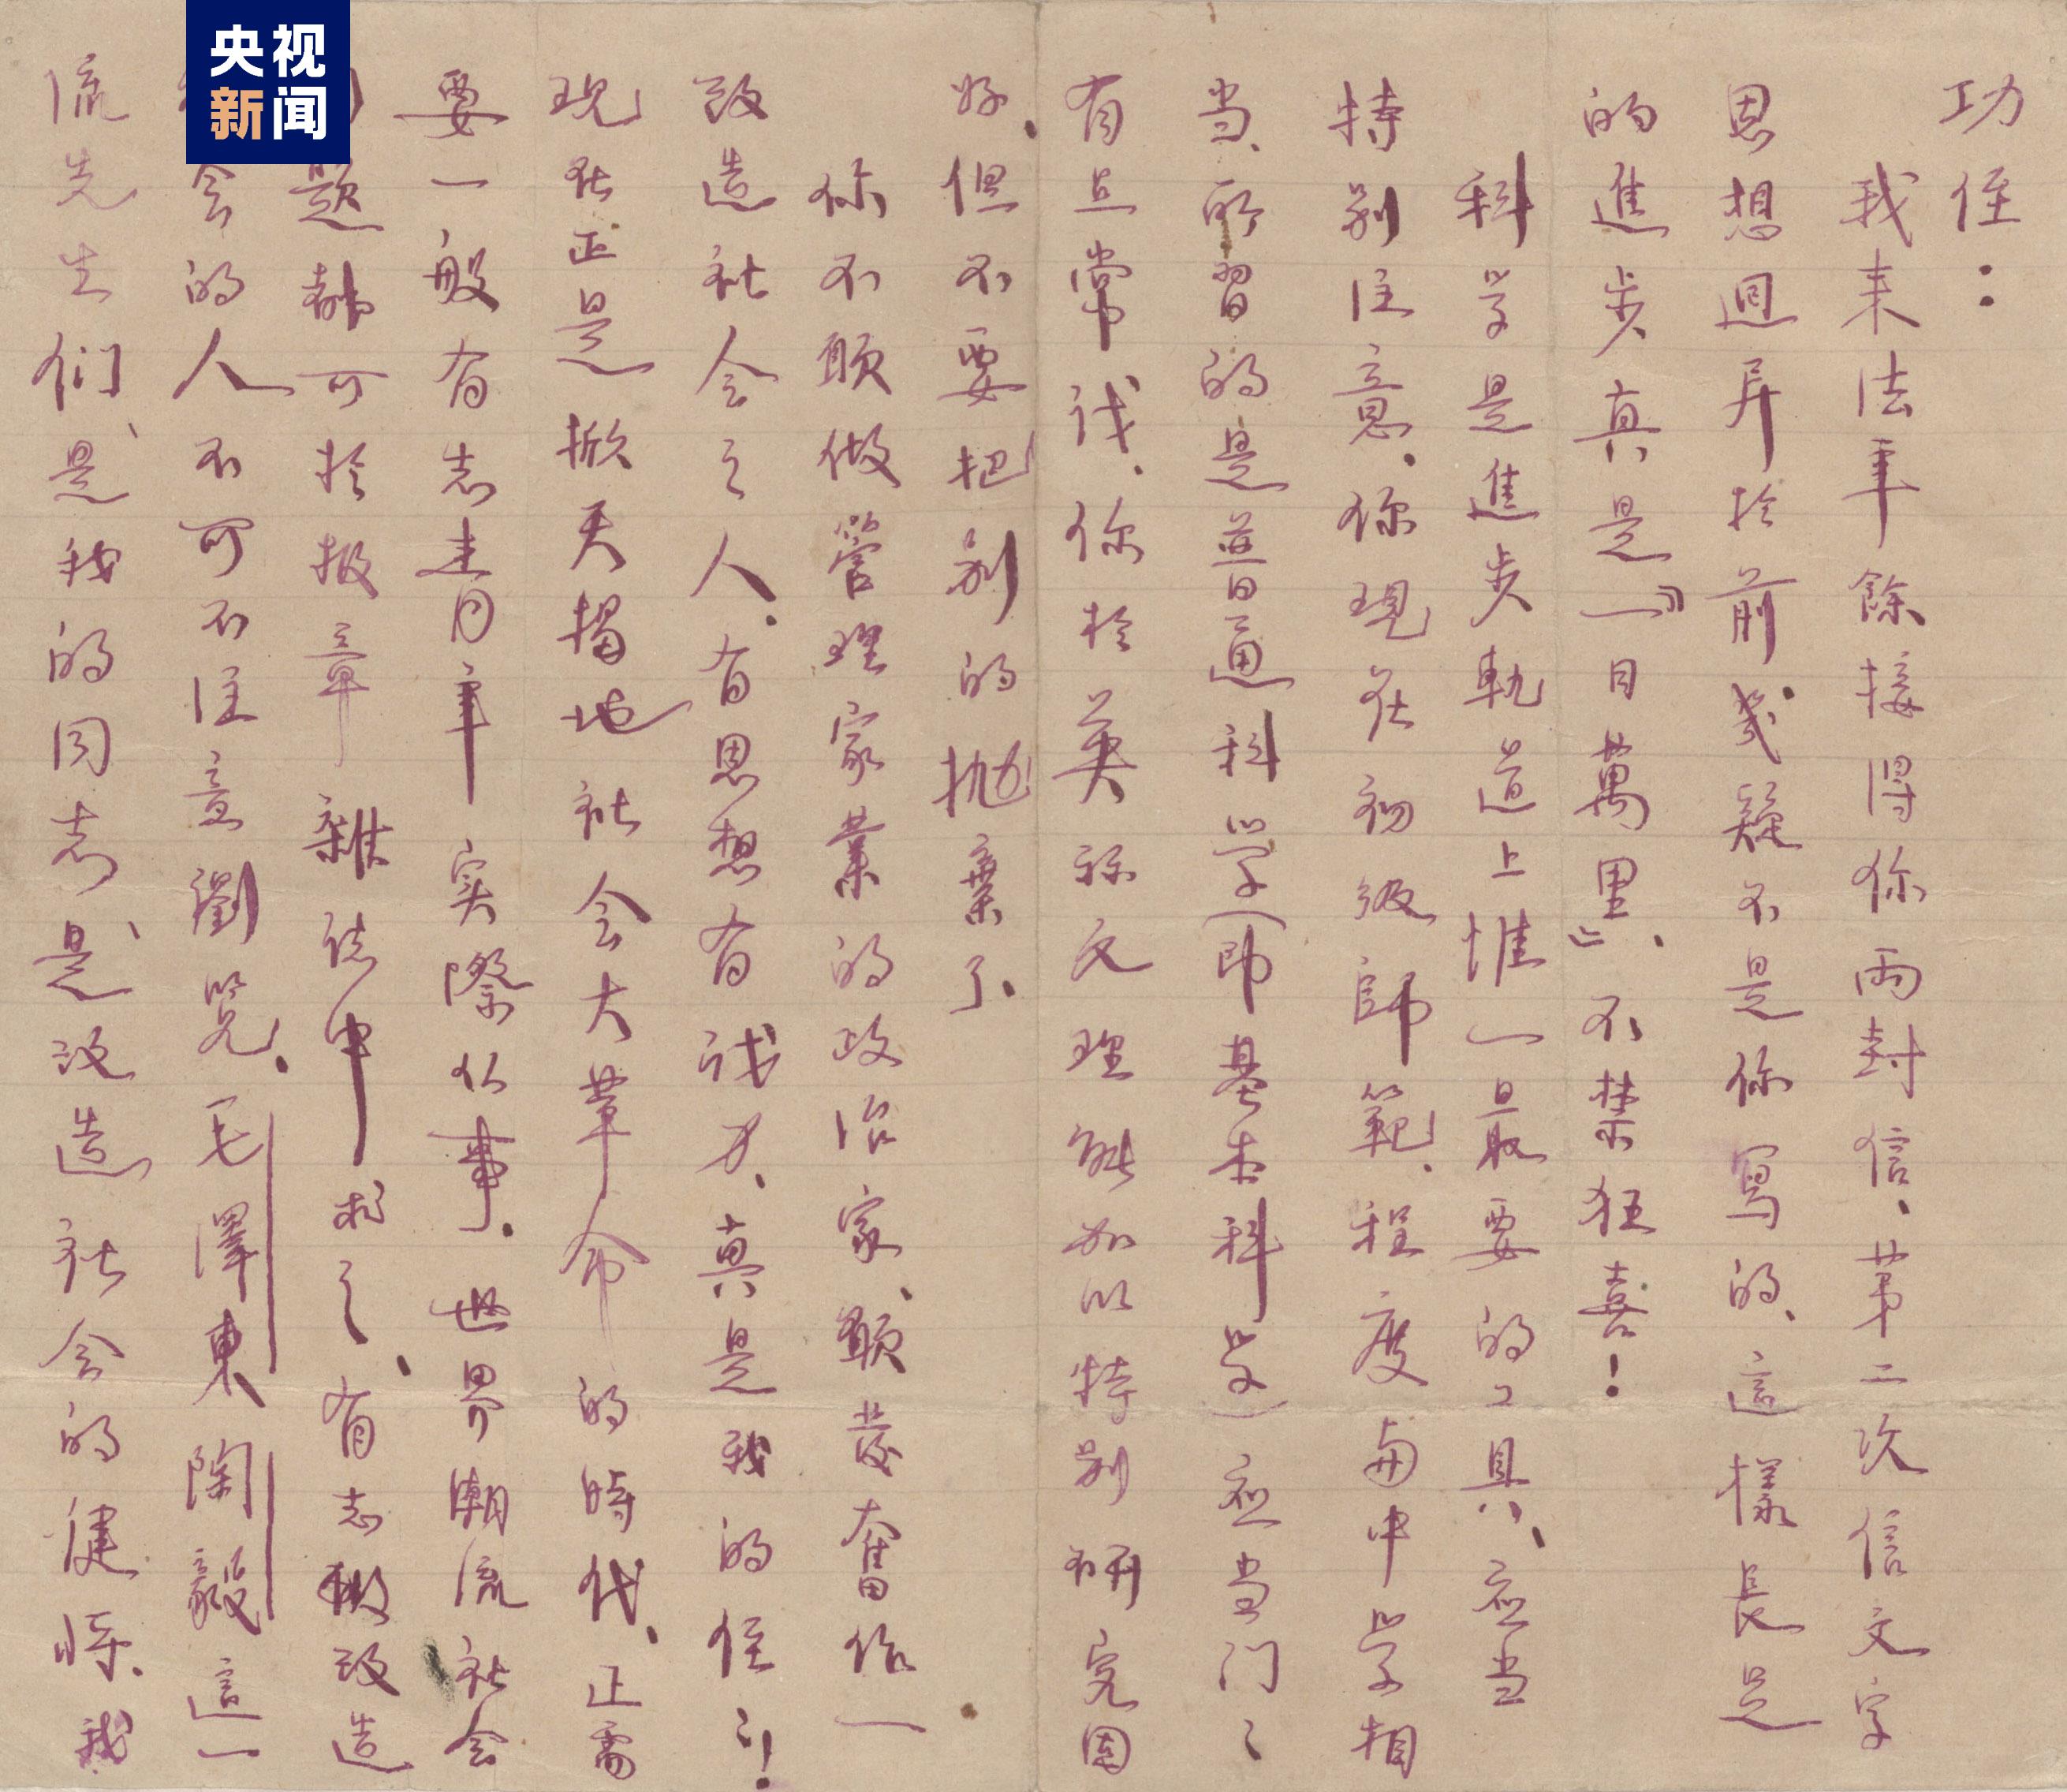 功侄：
我来法年餘接得你兩封信、第二次信文字
思想迥异於前幾疑不是你寫的、這樣長足
的進步真是『一日萬里』、不禁狂喜！
科学是進步軌道上惟一最要的工具、应当
特别注意、你現在初級師範、程度与中学相
当、所習的是普通科学（即基本科学）应当门々
有点常识、你於英称文理能加以特别研究固
好、但不要把别的抛棄了、
你不願做管理家業的政治家、願發奮作一
改造社会之人、有思想有识力、真是我的侄々！
現在正是掀天揭地社会大革命的時代、正需
要一般有志青年实際从事、世界潮流社会
题都可於报章雜誌中求之、有志做改造
会的人不可不注意瀏览、毛澤東陶毅這一
流先生们、是我的同志、是改造社会的健将、我
央视
新闻